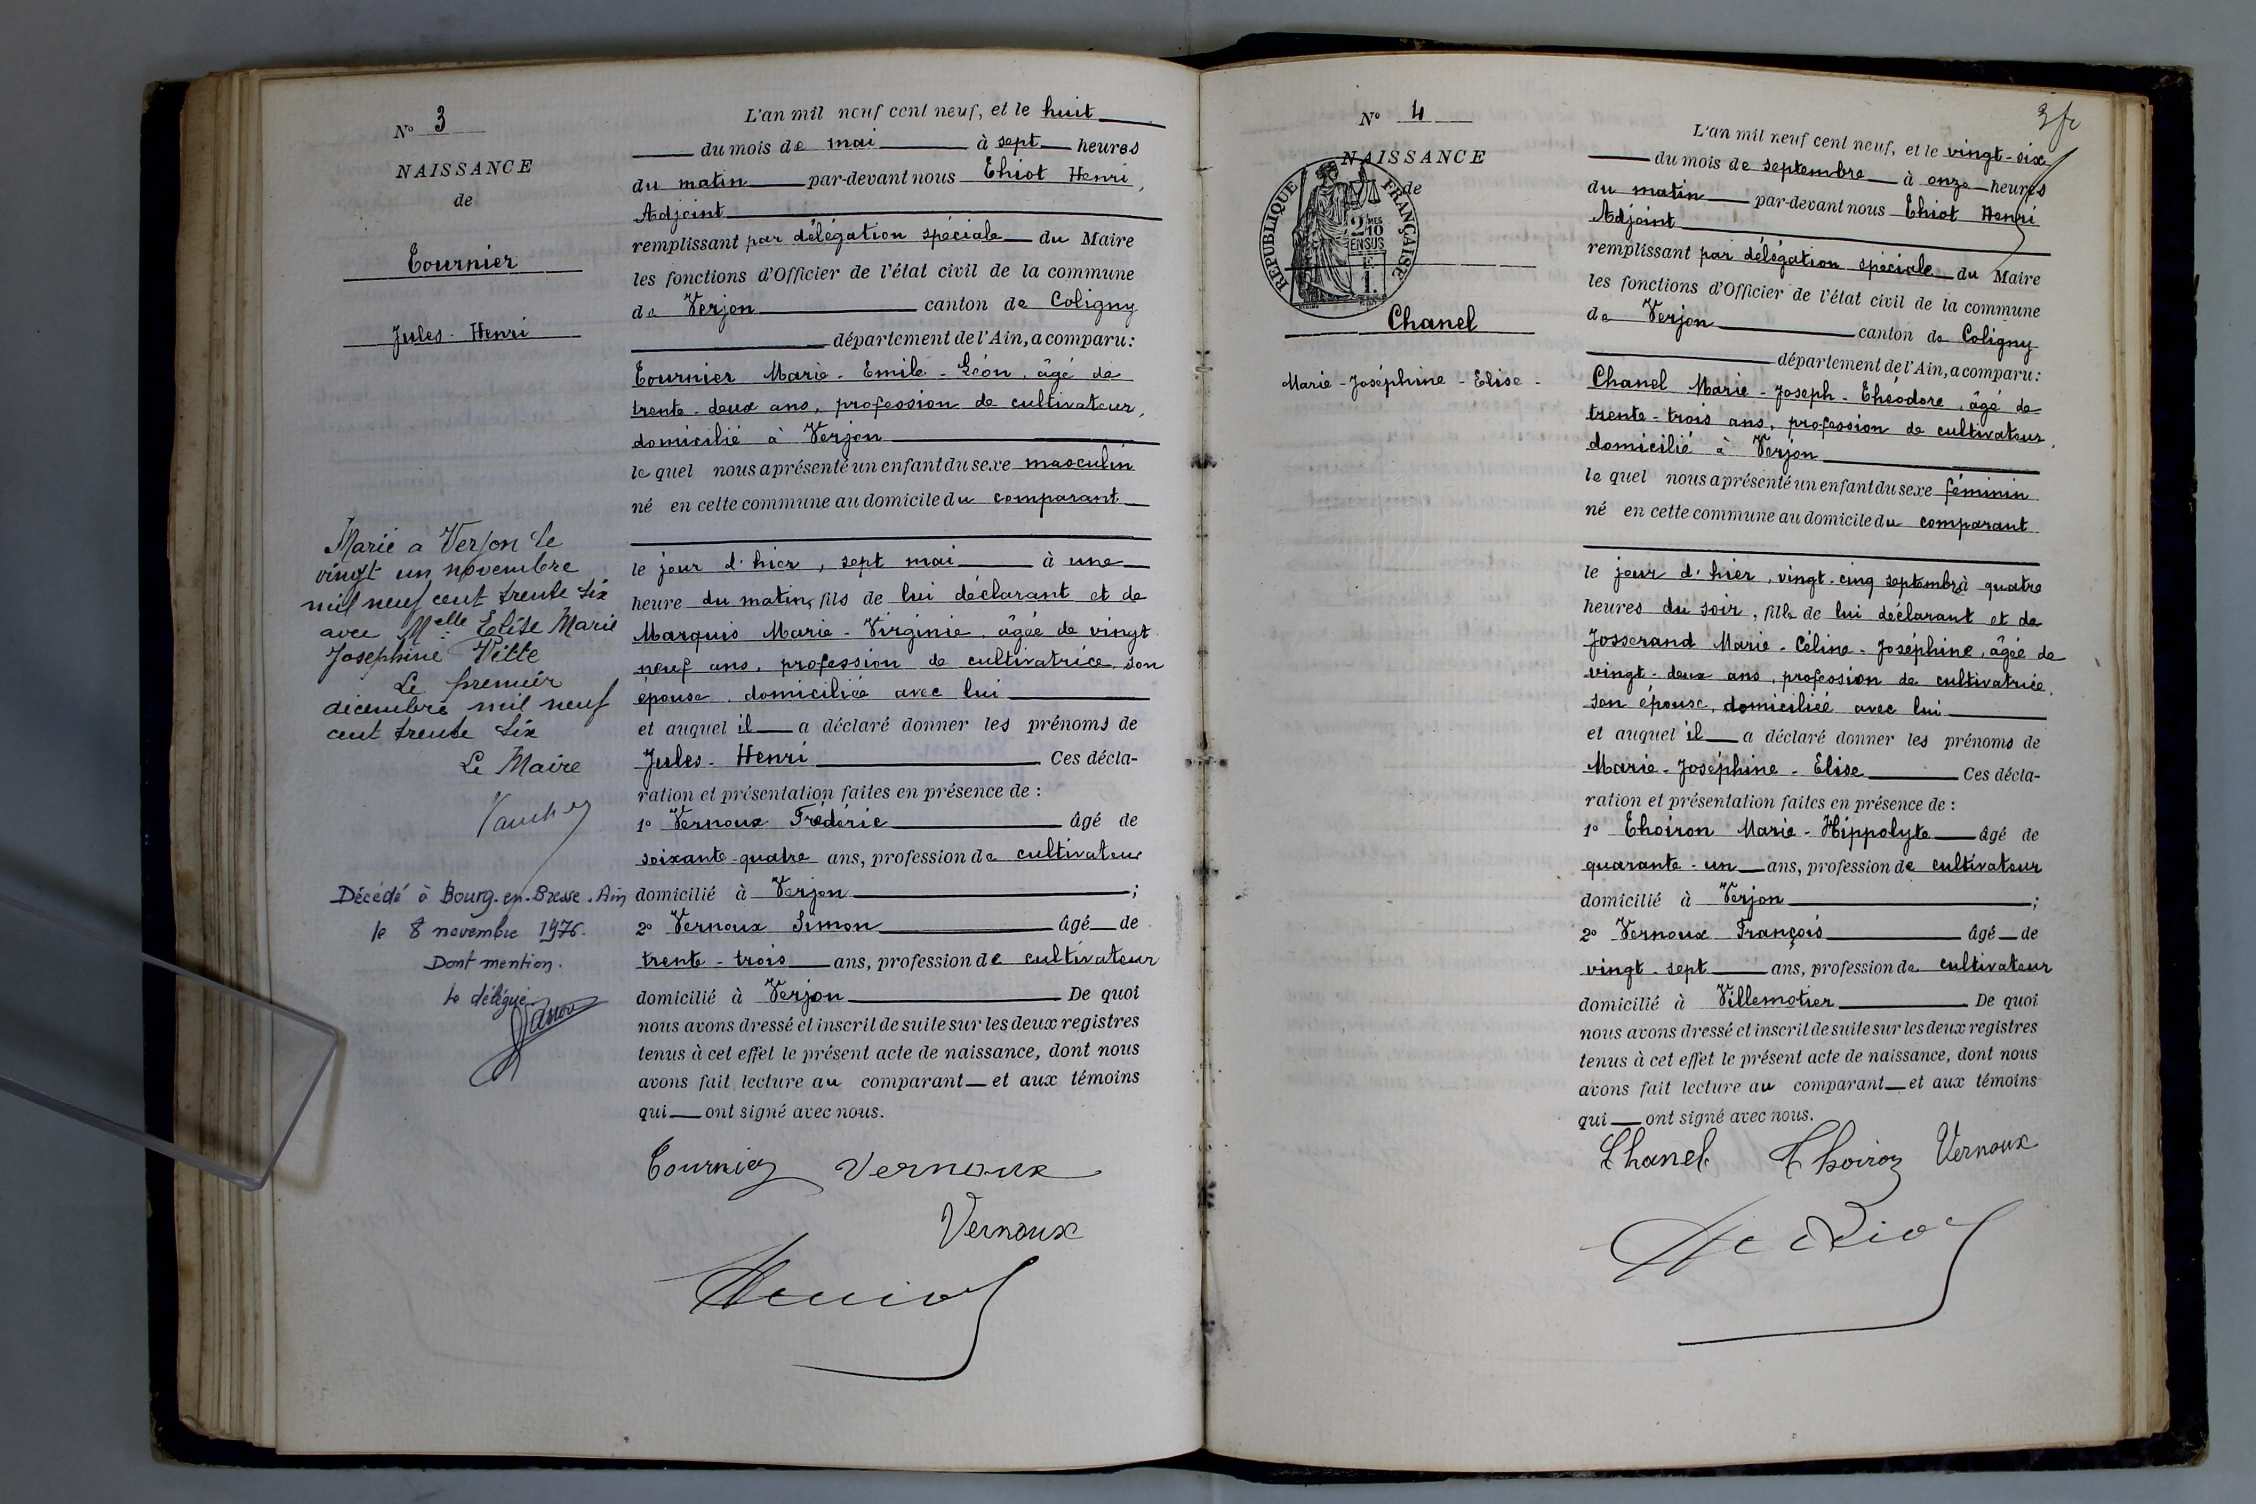 N° 3
NAISSANCE
de
Tournier
Jules - Henri
Marié à Verjon le
vingt un novembre
mil neuf cent trente six
avec Melle Elise Marie
Josephine Pitte
Le premier
décembre mil neuf
cent trente six
Le Maire
Décédé à Bourg-en-Bresse. Ain
le 8 novembre 1976.
Dont mention.
Le délégué
L'an mil neuf cent neuf, et le huit
du mois de mai à sept heures
du matin par-devant nous Thiot Henri,
Adjoint
remplissant par délégation spéciale du Maire
les fonctions d'Officier de l'état civil de la commune
de Verjon canton de Coligny
département de l'Ain, a comparu :
Tournier Marie - Emile - Léon, âgé de
trente - deux ans, profession de cultivateur,
domicilié à Verjon
le quel nous a présenté un enfant du sexe masculin
né en cette commune au domicile du comparant
le jour d'hier, sept mai à une
heure du matin, fils de lui déclarant et de
Marquis Marie - Virginie, âgée de vingt
neuf ans, profession de cultivatrice, son
épouse, domiciliée avec lui
et auquel il a déclaré donner les prénoms de
Jules - Henri Ces décla-
ration et présentation faites en présence de :
1° Vernoux Frédéric âgé de
soixante - quatre ans, profession de cultivateur
domicilié à Verjon ;
2° Vernoux Simon âgé de
trente - trois ans, profession de cultivateur
domicilié à Verjon De quoi
nous avons dressé et inscrit de suite sur les deux registres
tenus à cet effet le présent acte de naissance, dont nous
avons fait lecture au comparant et aux témoins
qui ont signé avec nous.
Tournier Vernoux
Vernoux
3fr
N° 4
NAISSANCE
de
REPUBLIQUE FRANÇAISE
2 MES
10
EN SUS
F.
1.
Chanel
Marie - Joséphine - Elise -
L'an mil neuf cent neuf, et le vingt - six
du mois de septembre à onze heures
du matin par-devant nous Thiot Henri
Adjoint
remplissant par délégation spéciale du Maire
les fonctions d'Officier de l'état civil de la commune
de Verjon canton de Coligny
département de l'Ain, a comparu :
Chanel Marie - Joseph - Théodore, âgé de
trente - trois ans, profession de cultivateur,
domicilié à Verjon
le quel nous a présenté un enfant du sexe féminin
né en cette commune au domicile du comparant
le jour d'hier, vingt - cinq septembre à quatre
heures du soir, fille de lui déclarant et de
Josserand Marie - Céline - Joséphine, âgée de
vingt - deux ans, profession de cultivatrice,
son épouse, domiciliée avec lui
et auquel il a déclaré donner les prénoms de
Marie - Joséphine - Elise Ces décla-
ration et présentation faites en présence de :
1° Thoiron Marie - Hippolyte âgé de
quarante - un ans, profession de cultivateur
domicilié à Verjon ;
2° Vernoux François âgé de
vingt - sept ans, profession de cultivateur
domicilié à Villemotier De quoi
nous avons dressé et inscrit de suite sur les deux registres
tenus à cet effet le présent acte de naissance, dont nous
avons fait lecture au comparant et aux témoins
qui ont signé avec nous.
Chanel Thoiron Vernoux